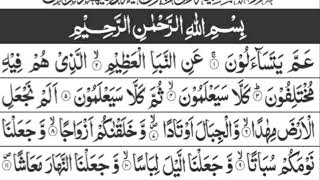 بِسْمِ اللّٰهِ الرَّحْمٰنِ الرَّحِیْمِ
عَمَّ یَتَسَآءَلُوْنَ ۚ۝۱ عَنِ النَّبَاِ الْعَظِیْمِ ۙ۝۲ الَّذِیْ هُمْ فِیْهِ
مُخْتَلِفُوْنَ ؕ۝۳ كَلَّا سَیَعْلَمُوْنَ ۙ۝۴ ثُمَّ كَلَّا سَیَعْلَمُوْنَ ۝۵ اَلَمْ نَجْعَلِ
الْاَرْضَ مِهٰدًا ۙ۝۶ وَّ الْجِبَالَ اَوْتَادًا ۪ۙ۝۷ وَّ خَلَقْنٰكُمْ اَزْوَاجًا ۙ۝۸ وَّ جَعَلْنَا
نَوْمَكُمْ سُبَاتًا ۙ۝۹ وَّ جَعَلْنَا الَّیْلَ لِبَاسًا ۙ۝۱۰ وَّ جَعَلْنَا النَّهَارَ مَعَاشًا ۪۝۱۱